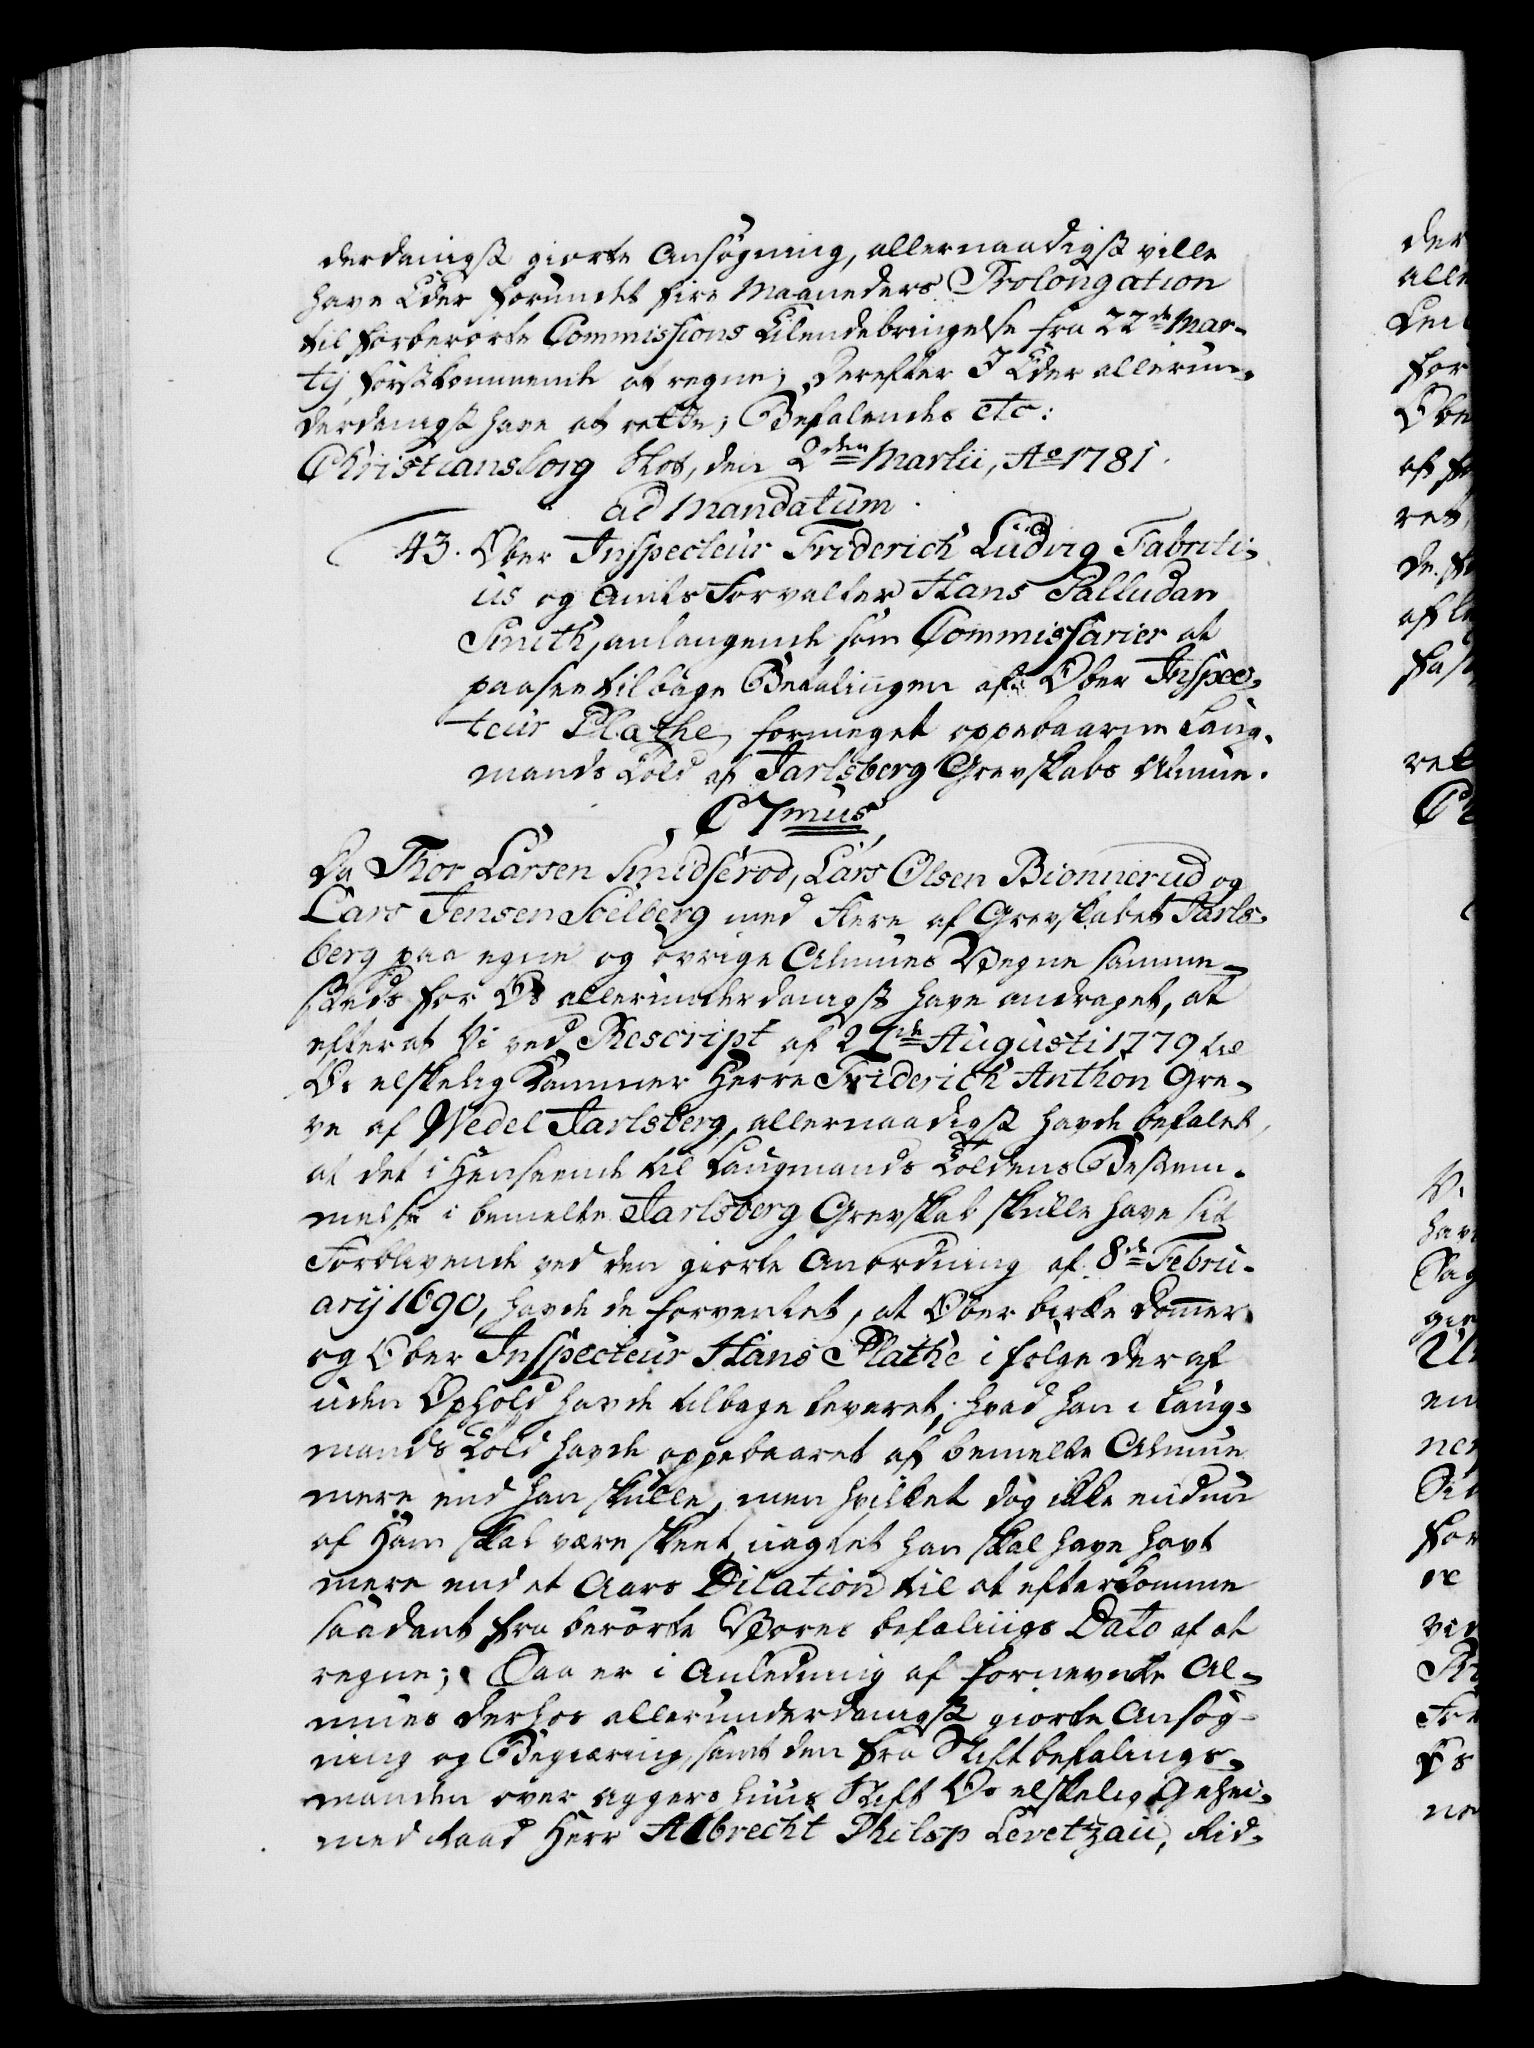 derdanigst giorte Ansøgning, allernaadigst ville
have Eder forundt fire Maaneders Prolongation
til forberørte Commissions Tilendebringelse fra 22de Mar-
tij førstkommende at regne; Derefter I Eder allerun-
derdanigst have at rette; Befalendes etc:
Christiansborg Slot, den 2den Martii, Ao 1781.
ad Mandatum.
43. Ober Inspecteur Friderich Ludvig Fabriti-
us og Amts Forvalter Hans Palludan
Smith, anlangende som Commissarier at
paasee tilbage Betalingen af Ober Inspec-
teur Plathe, formeget oppebaarne Laug-
mands Told af Jarlsberg Grevskabs Almue.
C 7mus
Da Thor Larsen Smidsrød, Lars Olsen Bionnerud og
Lars Jensen Solberg med flere af Grevskabet Jarls-
berg paa egne og øvrige Almues Vegne samme-
steds for Os allerunderdanigst have andraget, at
efterat Vi ved Rescript af 21de Augusti 1779 til
Os elskelig Kammer Herre Friderich Anthon Gre-
ve af Wedel Jarlsberg, allernaadigst havde befalet,
at det i Henseende til Laugmands Toldens Bestem-
melse i bemelte Jarlsberg Grevskab skulle have sit
Forblivende ved den giorte Anordning af 8de Febru-
arij 1690, havde de forventet, at Ober birke Dommer
og Ober Inspecteur Hans Plathe i følge deraf
uden Ophold havde tilbage leveret, hvad han i Laug-
mands Told havde oppebaaret af bemelte Almue
mere end han skulle, men hvilket dog ikke endnu
af Ham skal være skeet, uagtet han skal have havt
mere end et Aars Dilation til at efterkomme
saadant fra berørte Vores befalings Dato af at
regne; Saa er i Anledning af fornevnte Al-
mues derhos allerunderdanigst giorte Ansøg-
ning og Begiæring, samt den fra Stiftbefalings-
manden over Aggershuus Stift Os elskelig Gehei-
med Raad Herr Albrecht Philip Levetzau, Rid-